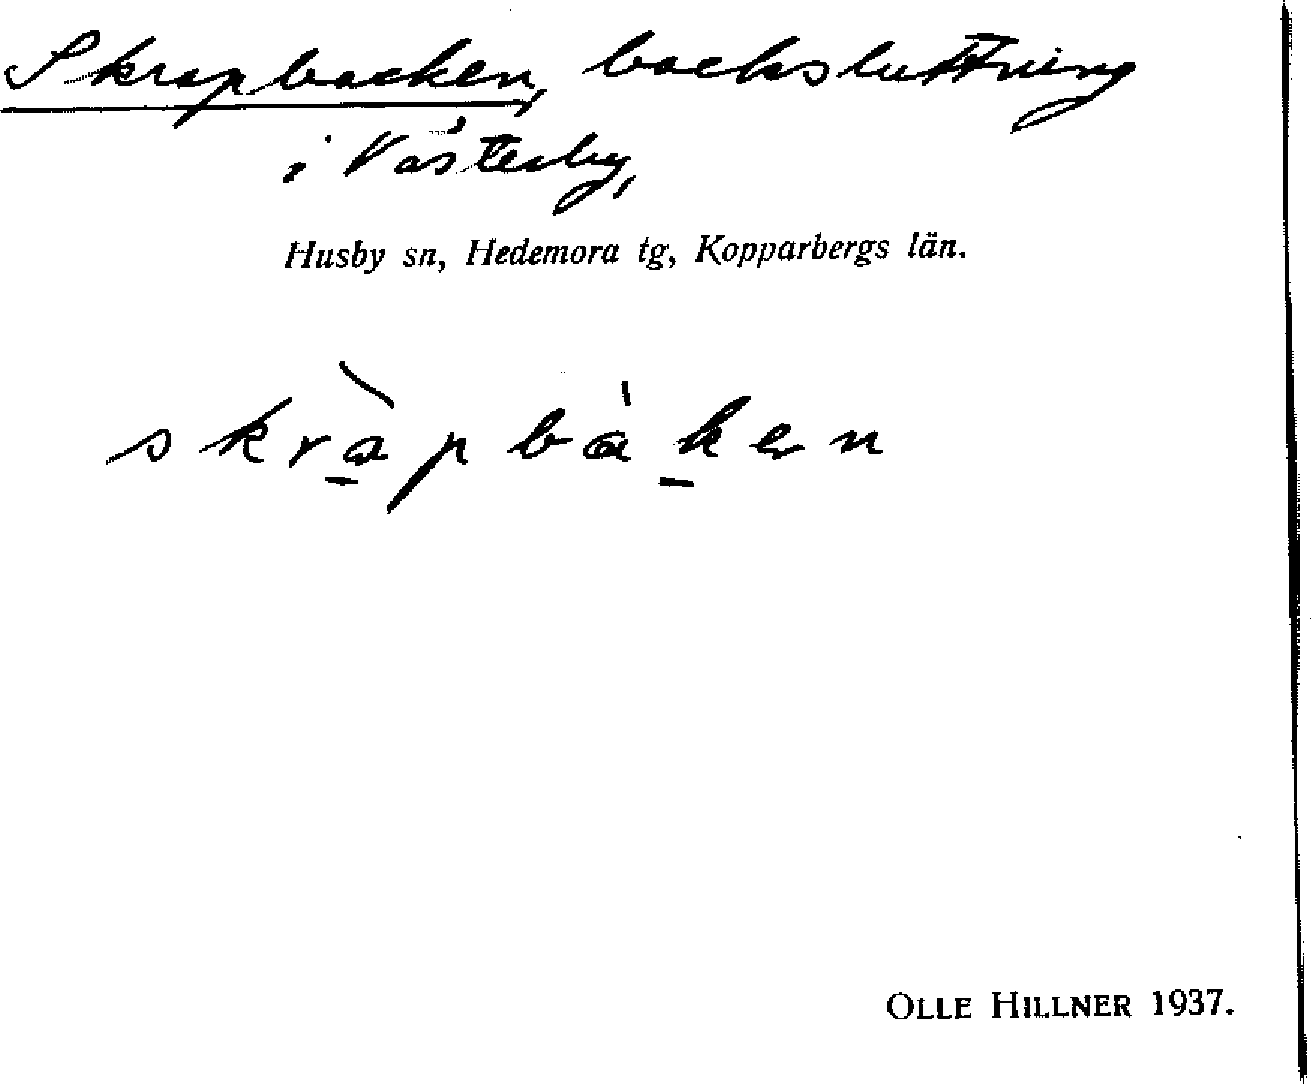 Skrapbacken, backsluttning
i Västerby,
Husby sn, Hedemora tg, Kopparbergs län.
skràpbàken
OLLE HILLNER 1937.